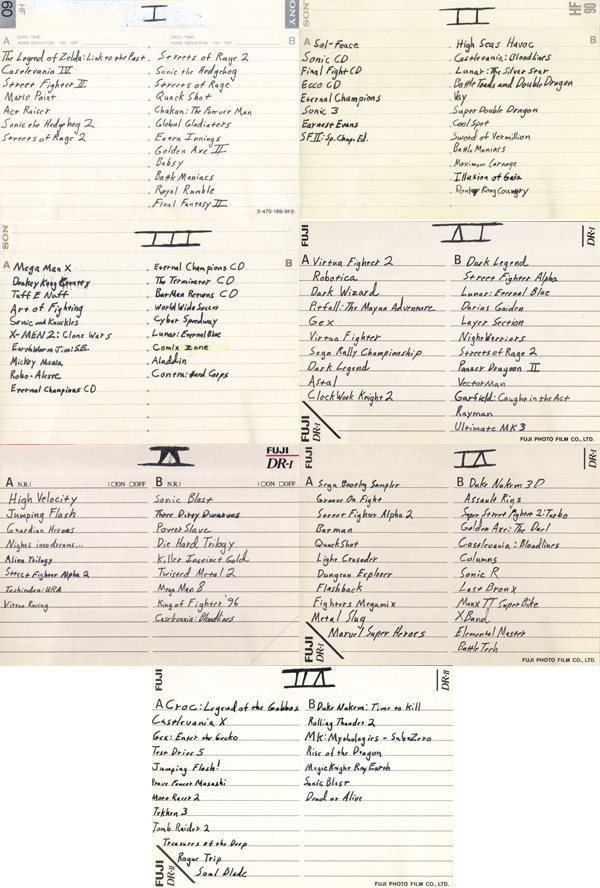 HF
60
I
SONY
A
DATE / TIME
NOISE REDUCTION ON · OFF
DATE / TIME
NOISE REDUCTION ON · OFF
B
The Legend of Zelda: Link to the Past
Castlevania IV
Street Fighter II
Mario Paint
Act Raiser
Sonic the Hedgehog 2
Streets of Rage 2
Streets of Rage 2
Sonic the Hedgehog
Streets of Rage
Quack Shot
Chakan: The Forever Man
Global Gladiators
Extra Innings
Golden Axe II
Bubsy
Battle Maniacs
Royal Rumble
Final Fantasy II
2-470-189-91
SONY
II
HF
90
A
B
Sol-Feace
Sonic CD
Final Fight CD
Ecco CD
Eternal Champions
Sonic 3
Earnest Evans
SF II: Sp. Champ. Ed.
High Seas Havoc
Castlevania: Bloodlines
Lunar: The Silver Star
Battle Toads and Double Dragon
Vay
Super Double Dragon
Cool Spot
Sword of Vermillion
Battle Maniacs
Maximum Carnage
Illusion of Gaia
Donkey Kong Country
SON
III
A
B
Mega Man X
Donkey Kong Country
Tuff E Nuff
Art of Fighting
Sonic and Knuckles
X-MEN 2: Clone Wars
EarthWorm Jim: SE.
Mickey Mania
Robo-Aleste
Eternal Champions CD
Eternal Champions CD
The Terminator CD
BatMan Returns CD
World Wide Soccer
Cyber Speedway
Lunar: Eternal Blue
Comix Zone
Aladdin
Contra: Hard Corps
FUJI
IV
DR-I
A Virtua Fighter 2
Robotica
Dark Wizard
Pitfall: The Mayan Adventure
Gex
Virtua Fighter
Sega Rally Championship
Dark Legend
Astal
ClockWork Knight 2
B Dark Legend
Street Fighter Alpha
Lunar: Eternal Blue
Darius Gaiden
Layer Section
Night Warriors
Streets of Rage 2
Panzer Dragoon II
VectorMan
Garfield: Caught in the Act
Rayman
Ultimate MK 3
FUJI
DR-I
FUJI PHOTO FILM CO., LTD.
V
FUJI
DR-I
A N.R.( ) □ON □OFF
B N.R.( ) □ON □OFF
High Velocity
Jumping Flash
Guardian Heroes
Nights into dreams...
Alien Trilogy
Street Fighter Alpha 2
Toshinden: URA
Virtua Racing
Sonic Blast
Three Dirty Dwarves
Power Slave
Die Hard Trilogy
Killer Instinct Gold
Twisted Metal 2
Mega Man 8
King of Fighter '96
Castlevania: Bloodlines
FUJI
VI
DR-I
A Sega Bootleg Sampler
Groove On Fight
Street Fighter Alpha 2
Batman
QuackShot
Light Crusader
Dungeon Explorer
Flashback
Fighters Megamix
Metal Slug
Marvel Super Heroes
B Duke Nukem 3D
Assault Rigs
Super Street Fighter 2: Turbo
Golden Axe: The Duel
Castlevania: Bloodlines
Columns
Sonic R
Last Bronx
Manx TT SuperBike
XBand
Elemental Master
BattleTech
FUJI
DR-I
FUJI PHOTO FILM CO., LTD.
FUJI
VII
DR-II
A Croc: Legend of the Gobbos
Castlevania X
Gex: Enter the Gecko
Test Drive 5
Jumping Flash!
Brave Fencer Musashi
Moto Racer 2
Tekken 3
Tomb Raider 2
Treasures of the Deep
Rogue Trip
Soul Blade
B Duke Nukem: Time to Kill
Rolling Thunder 2
MK: Mythologies - SubZero
Rise of the Dragon
Magic Knight RayEarth
Sonic Blast
Dead or Alive
FUJI
DR-II
FUJI PHOTO FILM CO., LTD.